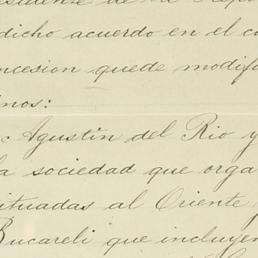 dicho acuerdo en el c
ncesion quede modifi
inos:
Agustín del Rio y
la sociedad que orga
ituadas al Oriente
Bucareli que incluyen